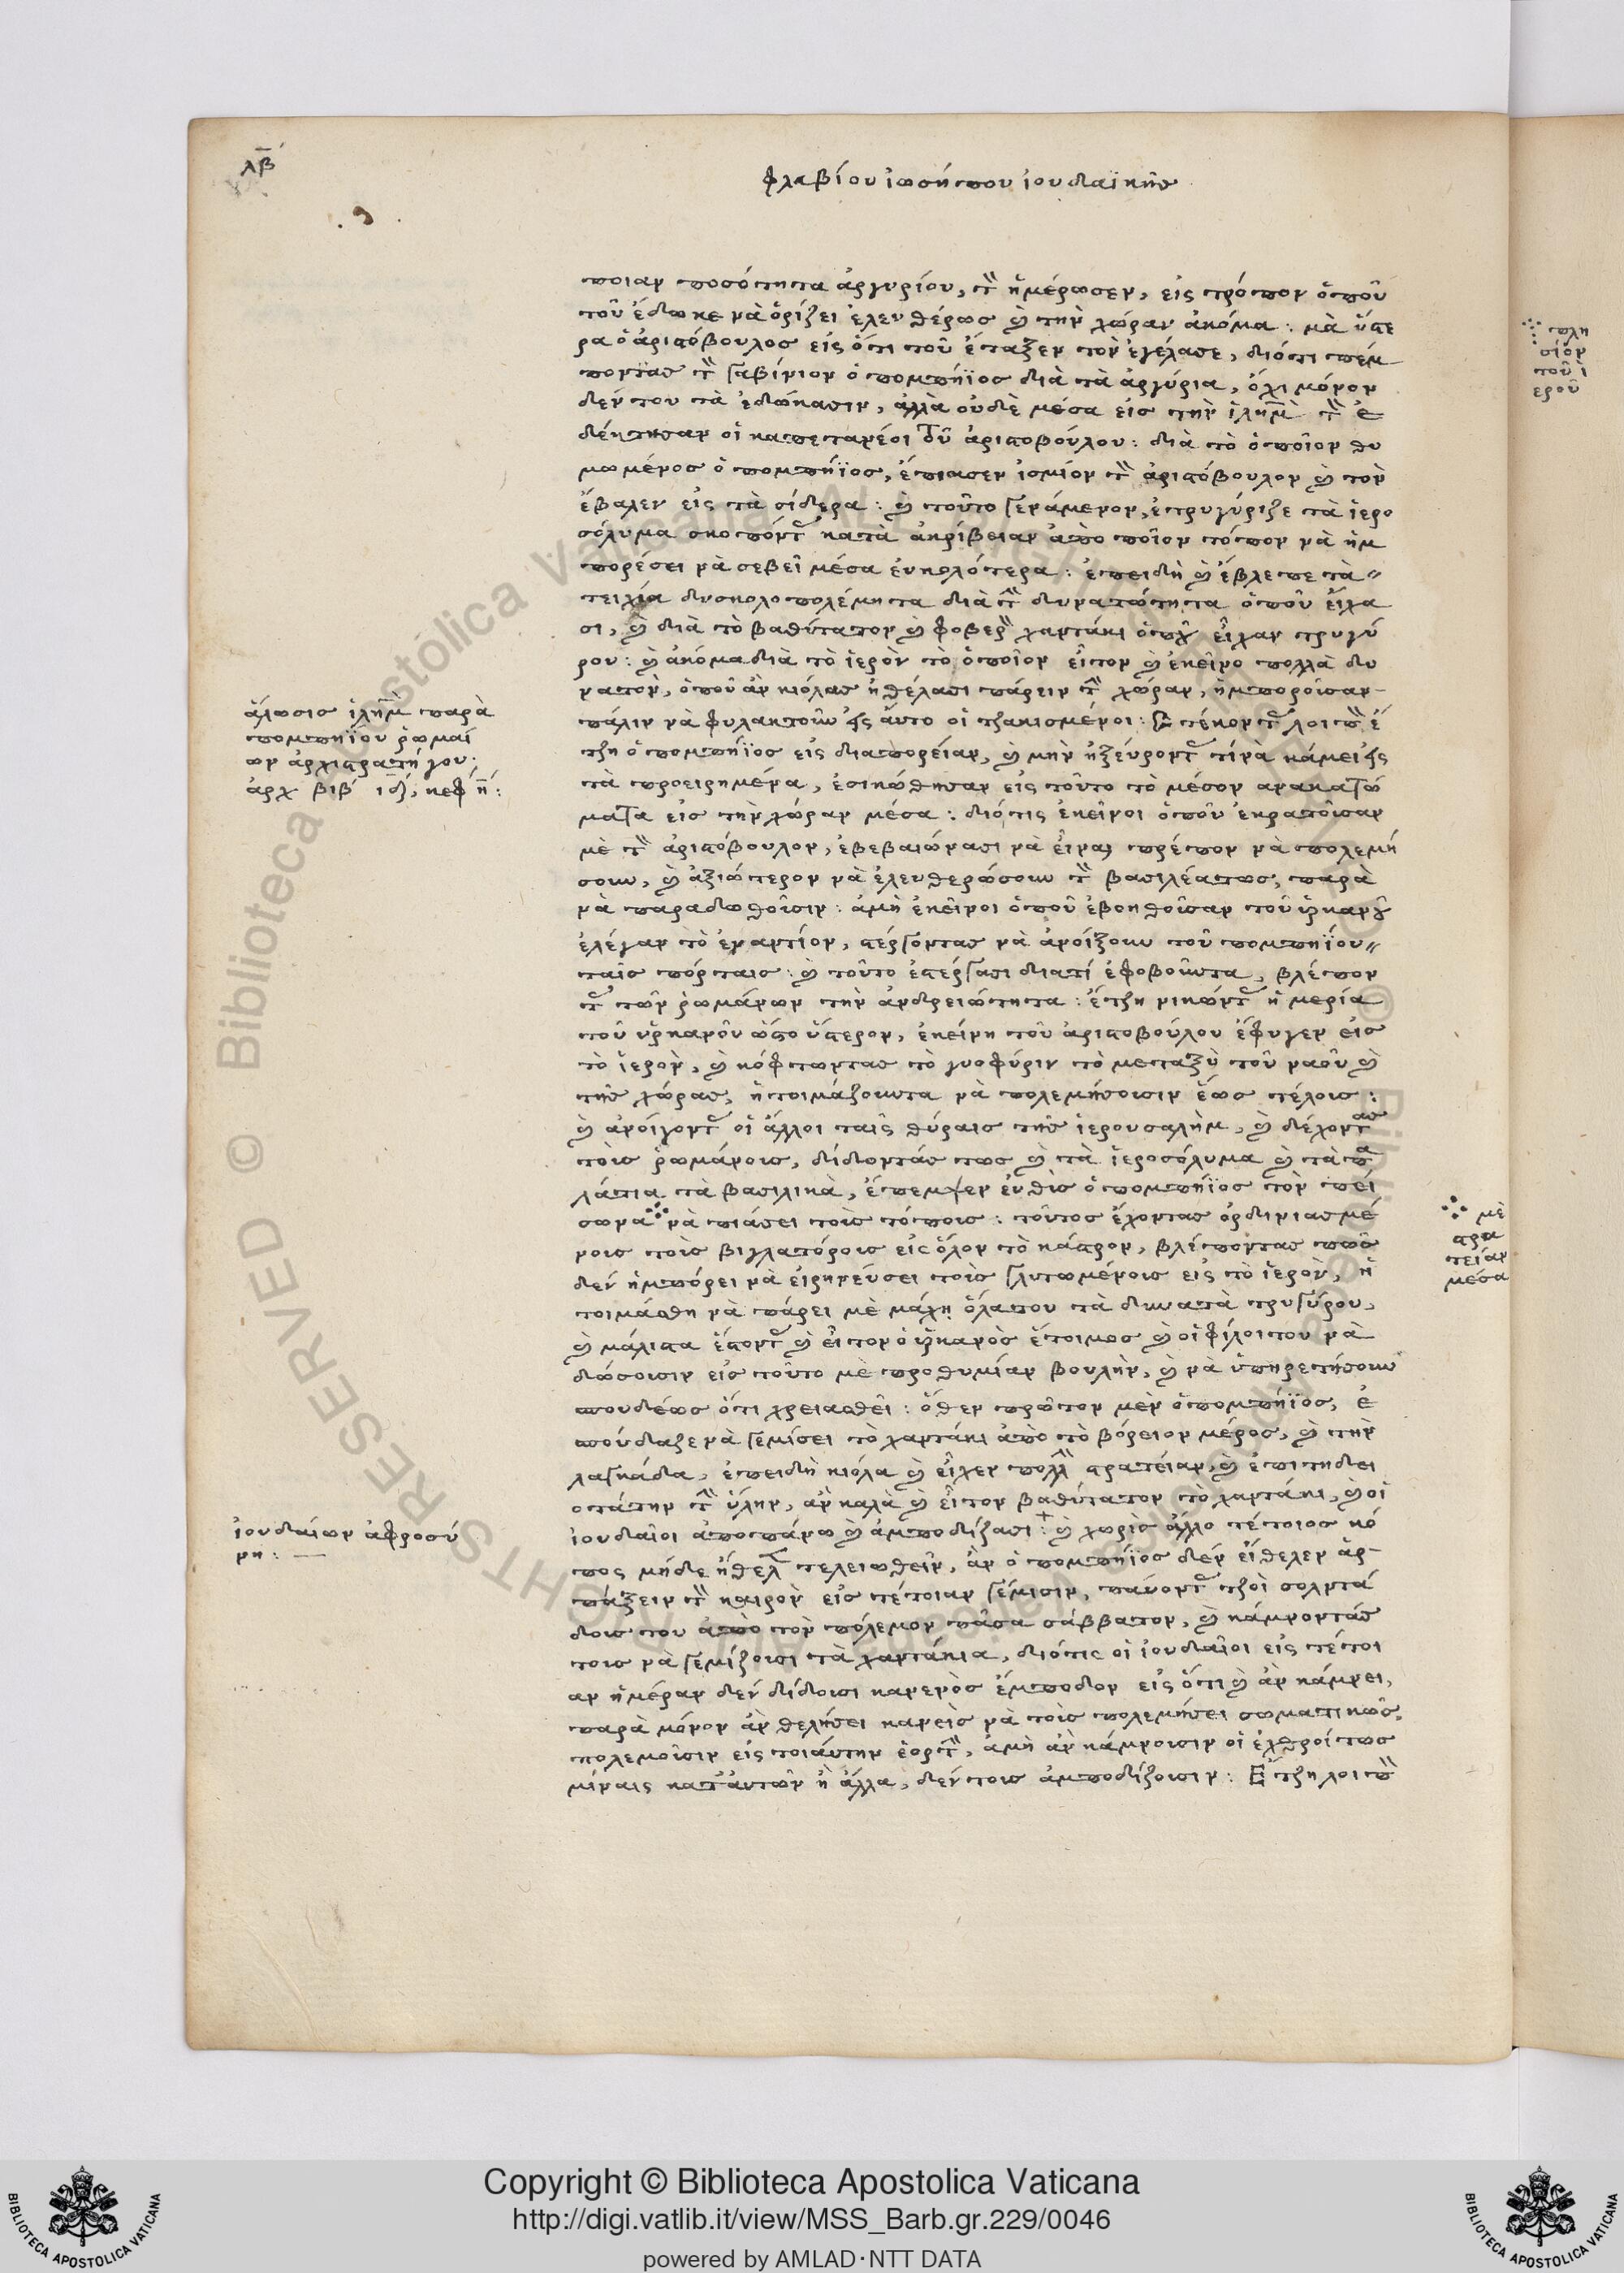 λβ
φλαβίου ἰωσήπου ἰουδαϊκῆς
ποιαν ποσότητα ἀργυρίου, τὸν ἡμέρωσεν, εἰς τρόπον ὁποῦ
τοῦ ἔδωκε νὰ ὁρίζει ἐλευθέρως καὶ τὴν χώραν ἀκόμα: μὰ ὕστε
ρα ὁ ἀριστόβουλος εἰς ὅτι τοῦ ἔταξεν τὸν ἐγέλασε, διότι πέμ
ποντας τὸν γαβίνιον ὁ πομπήϊος διὰ τὰ ἀργύρια, ὄχι μόνον
δεν του τὰ ἐδώκασιν, ἀλλὰ οὐδὲ μέσα εἰς τὴν ἱλημ τὸν ἐ
δέχτησαν οἱ καπετανέοι τοῦ ἀριστοβούλου: διὰ τὸ ὁποῖον θυ
μωμένος ὁ πομπήϊος, ἔπιασεν ἰσμίον τὸν ἀριστόβουλον καὶ τὸν
ἔβαλεν εἰς τὰ σίδερα: καὶ τοῦτο γενάμενον, ἐτρυγύριζε τὰ ἱερο
σόλυμα σκοπόντας κατὰ ἀκρίβειαν ἀπὸ ποῖον τόπον νὰ ἠμ
πορέσει νὰ σεβεῖ μέσα ἐυκολότερα: ἐπειδὴ καὶ ἔβλεπε τὰ
τειχία δυσκολοπολέμητα διὰ τὴν δυνατώτητα ὁποῦ εἶχα
σι, καὶ διὰ τὸ βαθύτατον καὶ φοβερὸν χαντάκι ὁποῦ εἶχαν τρυγύ
ρου: καὶ ἀκόμα διὰ τὸ ἱερὸν τὸ ὁποῖον εἶτον καὶ ἐκεῖνο πολλὰ δυ
νατὸν, ὁποῦ ἀν κιόλας ἠθέλασι πάρειν τὴν χώραν, ἠμποροῖσαν
πάλιν νὰ φυλακτοῦν εἰς ἄυτο οἱ τζακισμένοι: στέκοντας λοιπὸν ἔ
τζη ὁ πομπήϊος εἰς διαπορείαν, καὶ μην ἠξέυροντας τί νὰ κάμει εἰς
τὰ προειρημένα, ἐσικώθησαν εἰς τοῦτο τὸ μέσον ανακατώ
ματα εἰς τὴν χώραν μέσα: διότις ἐκεῖνοι ὁποῦ ἐκρατοῖσαν
μὲ τὸν ἀριστόβουλον, ἐβεβαιώνασι νὰ εἶναι πρέπον νὰ πολεμή
σουν, καὶ ἀξιώτερον νὰ ἐλευθερώσουν τὸν βασιλέα τως, παρὰ
νὰ παραδωθοῖσιν: ἀμὴ ἐκεῖνοι ὁποῦ ἐβοηθοῖσαν τοῦ ὑρκανοῦ
ἐλέγαν τὸ ἐναντίον, στέργοντας νὰ ἀνοίξουν τοῦ πομπηΐου
ταῖς πόρταις: καὶ τοῦτο ἐστέργασι διατί ἐφοβοῦντα, βλέπον
τας τῶν ῥωμάνων τὴν ἀνδρειώτητα: ἔτζη νικώντας ἡ μερία
τοῦ ὑρκανοῦ ὥστο ὕστερον, ἐκείνη τοῦ ἀριστοβούλου ἔφυγεν εἰς
τὸ ἱερὸν, καὶ κόφτωντας τὸ γυοφύριν τὸ μεταξὺ τοῦ ναοῦ καὶ
τῆς χώρας, ἠτοιμάζουντα νὰ πολεμήσοισιν ἕως τέλοις:
καὶ ἀνοίγοντας οἱ ἄλλοι ταῖς θύραις τῆς ἱερουσαλὴμ, καὶ δέχοντας
τοῖς ῥωμάνοις, δίδωντάς τως καὶ τὰ ἱεροσόλυμα καὶ τὰ πα
λάτια τὰ βασιλικὰ, ἔπεμψεν ἐυθὶς ὁ πομπήϊος τὸν πεί
σωνα νὰ πιάσει τοὶς τόποις: τοῦτος ἔχοντας ὀρδινιασμέ
νοις τοὶς βιγλατόροις εἰς ὅλον τὸ κάστρον, βλέποντας πῶς
δέν ἠμπόρει νὰ εἰρηνεύσει τοὶς γλυτωμένοις εἰς τὸ ἱερὸν, ἡ
τοιμάσθη νὰ πάρει μὲ μάχη ὅλα του τὰ δυνατὰ τρυγύρου,
καὶ μάλιστα ἔστοντας καὶ εἶτον ὁ ὑρκανὸς ἕτοιμος καὶ οἱ φίλοι του νὰ
δώσοισιν εἰς τοῦτο μὲ προθυμίαν βουλὴν, καὶ νὰ ὑπηρετήσουν
σπουδέως ὅτι χρειασθεῖ: ὅθεν πρῶτον μὲν ὁ πομπήϊος, ἐ
σπούδαζε νὰ γεμίσει τὸ χαντάκι ἀπὸ τὸ βόρειον μέρος, καὶ τὴν
λαγκάδα, ἐπειδὴ κιόλα καὶ εἶχεν πολλὴν στρατείαν, καὶ ἐπιτηδει
οτάτην τὴν ὕλην, ἀν καλὰ καὶ εἶτον βαθύτατον τὸ χαντάκι, καὶ οἱ
ἰουδαῖοι ἀποπάνω καὶ ἀμποδίζασι: καὶ χωρὶς ἄλλο τέτοιος κό
πος μήδε ἤθελε τελειωθεῖν, ἀν ὁ πομπήϊος δέν εἴθελεν ἁρ
πάξειν τὸν καιρὸν εἰς τέτοιαν γέμισιν, πάυοντας τζοὶ σολντά
δοις του ἀπὸ τὸν πόλεμον πᾶσα σάββατον, καὶ κάμνοντάς
τοις νὰ γεμίζοισι τὰ χαντάκια, διότις οἱ ἰουδαῖοι εἰς τέτοι
αν ἡμέραν δέν δίδοισι κανενὸς ἔμποδον εἰς ὅτι καὶ ἀν κάμνει,
παρὰ μόνον ἀν θελήσει κανεὶς νὰ τοὶς πολεμήσει σωματικῶς,
πολεμοῖσιν εἰς τοιάυτην ἑορτὴν, ἀμὴ ἀν κάμνοισιν οἱ ἐχθροί τως
μίναις κατ' ἀυτῶν ἢ ἄλλα, δέν τοις ἀμποδίζοισιν: Ἔτζη λοιπὸν
ἅλωσις ἱλημ παρὰ
πομπηΐου ῥωμαί
ων ἀρχιστρατήγου:
ἀρχ βιβ ιδ, κεφ η:
ἰουδαίων ἀφροσύ
νη:
μὲ
στρα
τείαν
μέσα
πλη
σίον
τοῦ ἱ
εροῦ
Copyright © Biblioteca Apostolica Vaticana
http://digi.vatlib.it/view/MSS_Barb.gr.229/0046
powered by AMLAD·NTT DATA
BIBLIOTECA APOSTOLICA VATICANA
BIBLIOTECA APOSTOLICA VATICANA